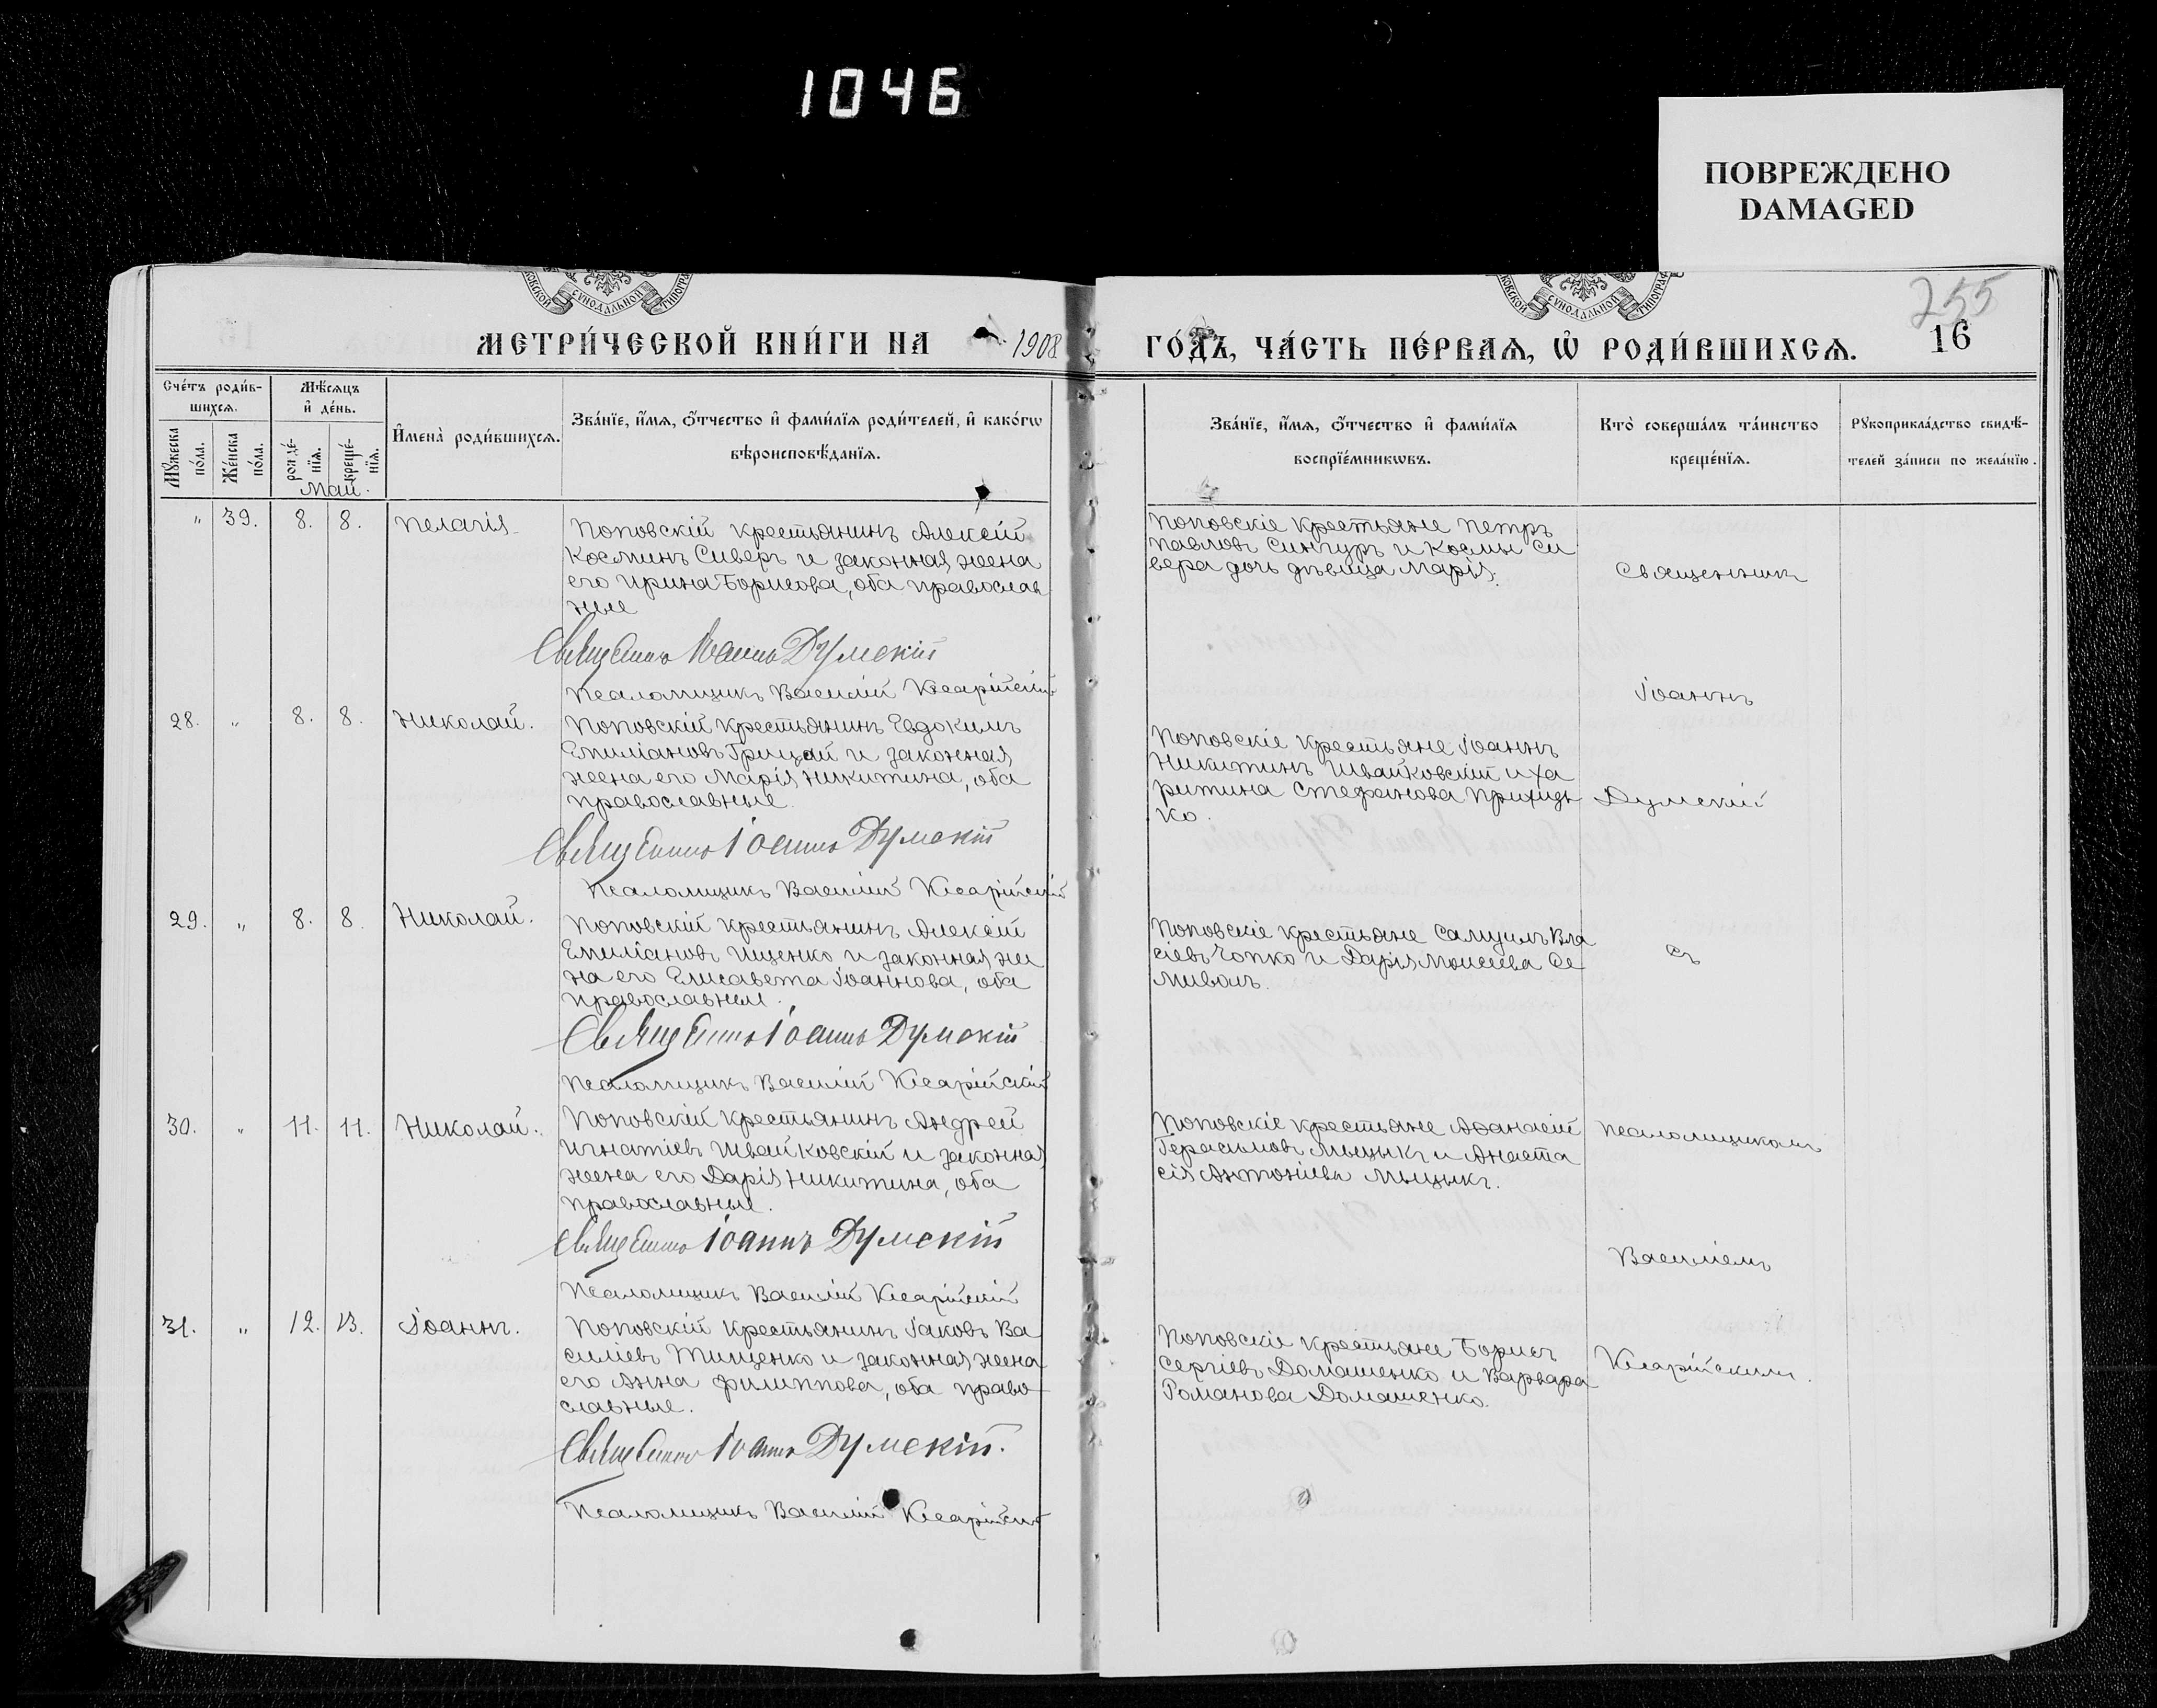 1046
ПОВРЕЖДЕНО
DAMAGED
МЕТРИ́ЧЕСКОЙ КНИ́ГИ НА 1908
ГО́ДЪ, ЧА́СТЬ ПЕ́РВАЯ, Ѡ҆ РОДИ́ВШИХСЯ.
255
16
Сче́тъ роди́в-
шихся.
Мѣ́сяцъ
и҆ де́нь.
Мꙋ́жеска
по́ла.
Же́нска
по́ла.
рожде́-
нїя.
креще́-
нїя.
И҆мена̀ роди́вшихся.
Зва́нїе, и҆́мя, ѻ҆́тчество и҆ фами́лїя роди́телей, и҆ како́гѡ
вѣроисповѣ́данїя.
Зва́нїе, и҆́мя, ѻ҆́тчество и҆ фами́лїя
воспрїе́мникѡвъ.
Кто̀ соверша́лъ та́инство
креще́нїя.
Рꙋкоприкла́дство свидѣ́-
телей за́писи по жела́нїю.
Май.
" 39. 8. 8. Пелагія
Поповскій крестьянинъ Алексій
Косминъ Сиверъ и законная жена
его Ирина Борисова, оба православ
ные
Священникъ Іоаннъ Думскій
Псаломщикъ Василій Кесарійскій
Поповскіе крестьяне Петръ
Павловъ Сингуръ и Космы Си
вера дочь дѣвица Марія.
Священникъ
Іоаннъ
28. " 8. 8. Николай.
Поповскій крестьянинъ Евдокимъ
Емиліановъ Грицай и законная
жена его Марія Никитина, оба
православные.
Священникъ Іоаннъ Думскій
Псаломщикъ Василій Кесарійскій
Поповскіе крестьяне Іоаннъ
Никитинъ Швайковскій и Ха
ритина Стефанова Приходь
ко.
Думскій
29. " 8. 8. Николай.
Поповскій крестьянинъ Алексій
Емиліановъ Ищенко и законная же
на его Елисавета Іоаннова, оба
православные.
Священникъ Іоаннъ Думскій
Псаломщикъ Василій Кесарійскій
Поповскіе крестьяне Самуилъ Вла
сіевъ Чопко и Дарія Моисеева Се
миволъ.
съ
30. " 11. 11. Николай.
Поповскій крестьянинъ Андрей
Игнатіевъ Швайковскій и законная
жена его Дарія Никитина, оба
православные.
Священникъ Іоаннъ Думскій
Псаломщикъ Василій Кесарійскій
Поповскіе крестьяне Аѳанасій
Герасимовъ Мыцыкъ и Анаста
сія Антоніева Мыцыкъ.
псаломщикомъ
Василіемъ
31. " 12. 13. Іоаннъ.
Поповскій крестьянинъ Іаковъ Ва
силіевъ Тищенко и законная жена
его Анна Филиппова, оба право
славные.
Священникъ Іоаннъ Думскій.
Псаломщикъ Василій Кесарійскій
Поповскіе крестьяне Борисъ
Сергіевъ Домашенко и Варвара
Романова Домашенко.
Кесарійскимъ.